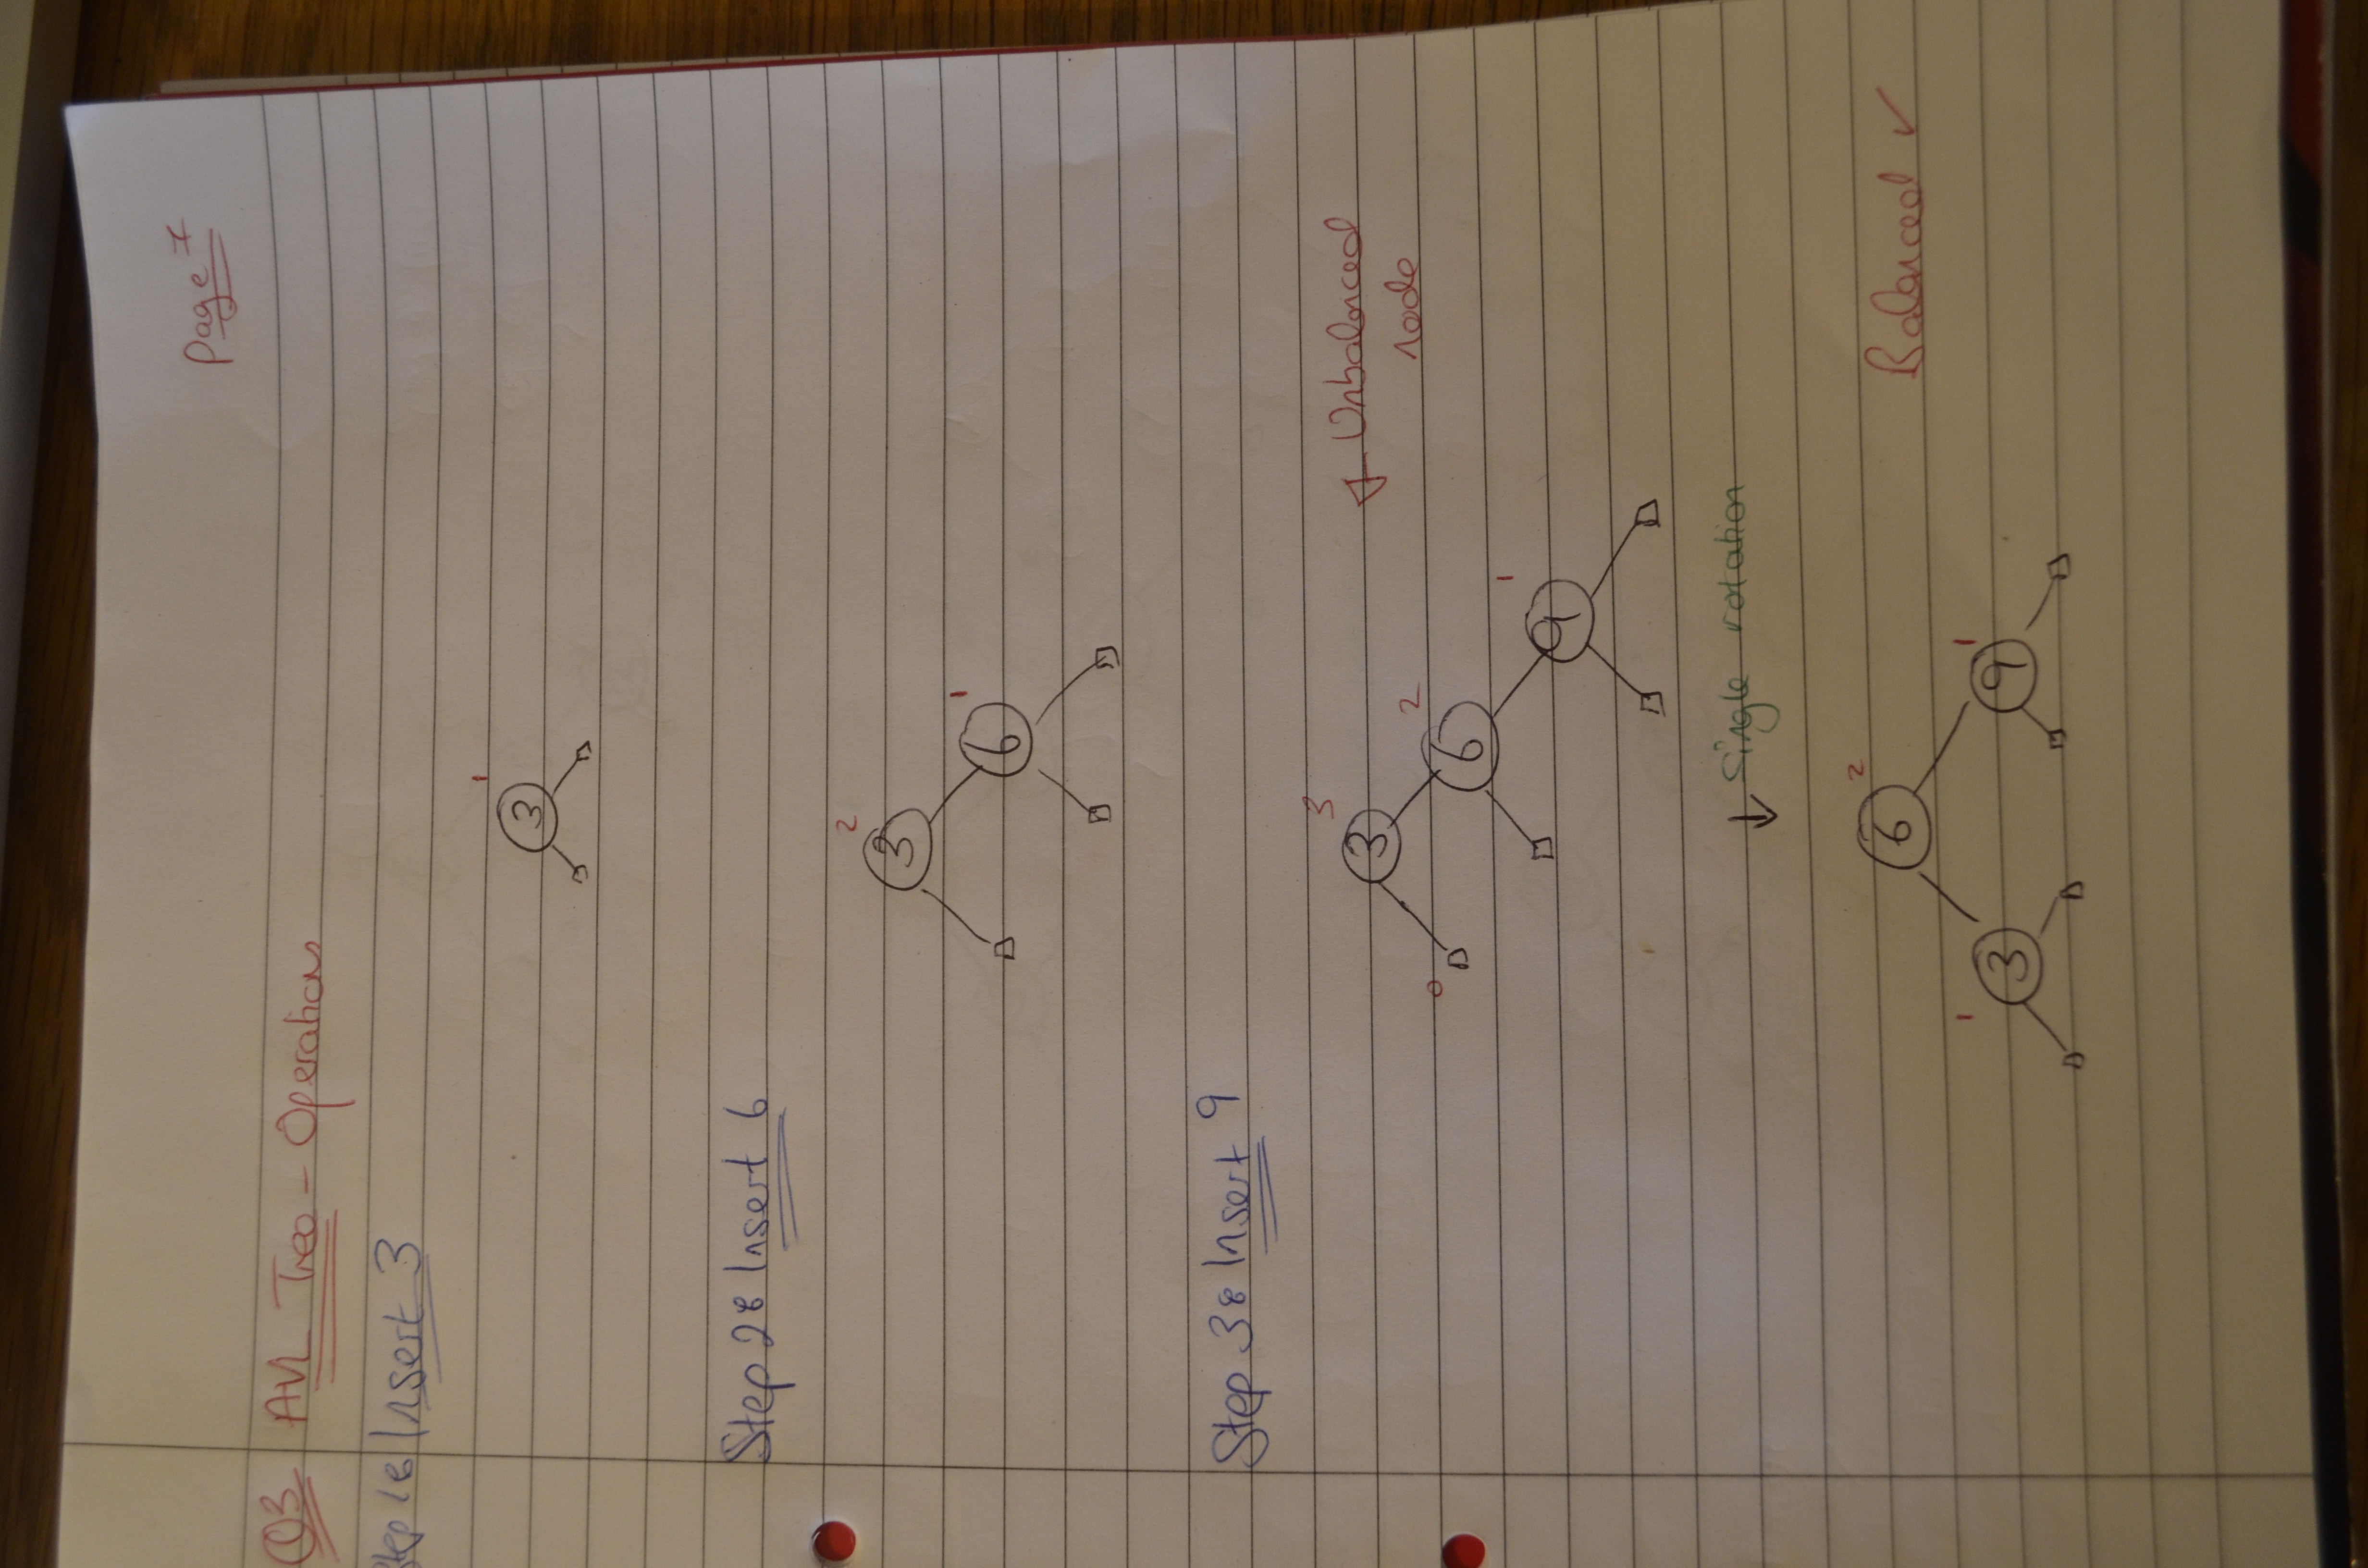 Page 7
Q3 AVL Tree - Operations
Step 1: Insert 3
1
3
Step 2: Insert 6
2
3
1
6
Step 3: Insert 9
3
3
← Unbalanced
node
0
2
6
1
9
↓ Single rotation
2
6
Balanced ✓
1
3
1
9